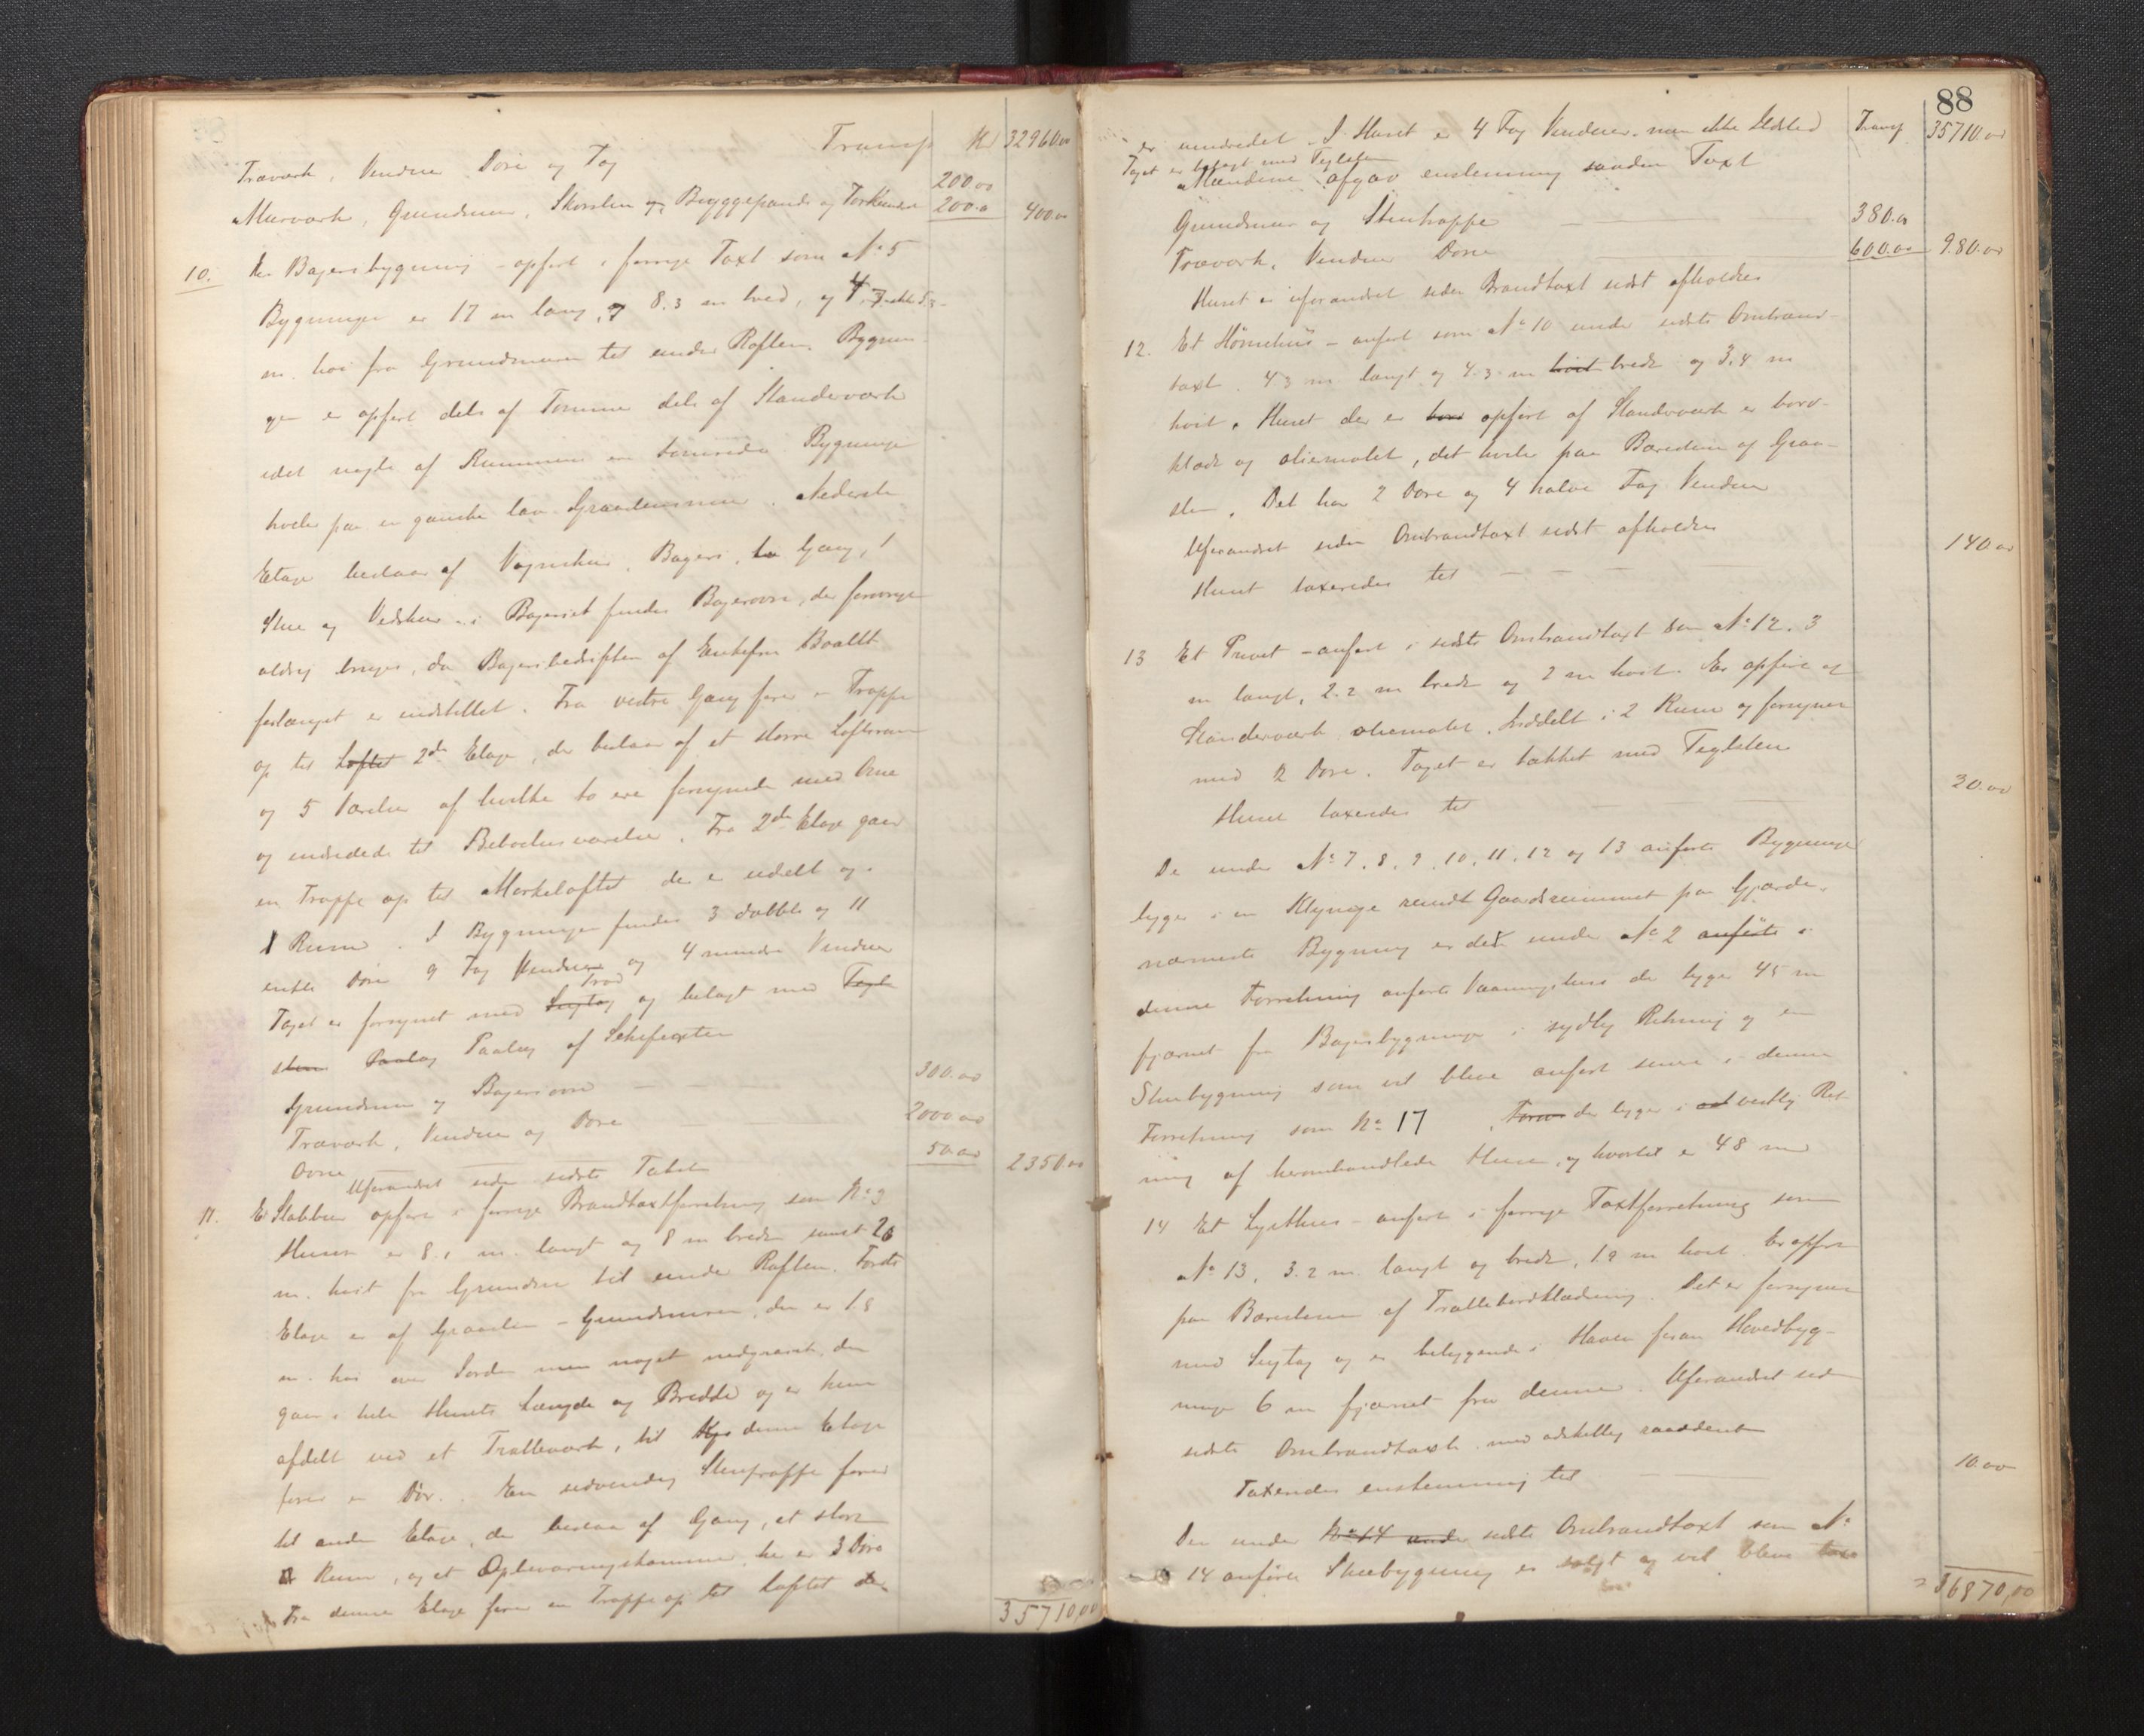 Transp Kr 32960.00
Træværk, Vinduer Døre og Tag 200.00
Murværk, Grundmur, Skorsten og Bryggepande og Tørkeinder 200.0 400.00
10. En Bageribygning – opført i forrige Taxt som No 5
Bygningen er 17 m lang, 8.3 m bred, og 4
m. høi fra Grundmuren til under Raften. Bygnin-
gen er opført dels af Tømmer dels af Standeværk
idet nogle af Rummene er tømrede Bygningen
hviler paa en ganske lav Graastensmur. Nederste
Etage bestaar af Vognskur, Bageri, to Gang, 1
Stue og Vedskur – i Bageriet findes Bagerovn, der forøvrigt
aldrig bruges, da Bageribedriften af Enkefru Boallt
forlænget er indstillet. Fra vestre Gang fører en Trappe
op til Loftet 2den Etage, der bestaar af et større Loftsrum
og 5 Værelser af hvilke to ere forsynede med Ovne
og indredede til Beboelsesværelser. Fra 2den Etage gaar
en Trappe op til Mørkeloftet der er udelt og
1 Rum. I Bygningen findes 3 dobbelte og 11
enkle Døre 9 Fag Vinduer og 4 mindre Vinduer
Trod
Taget er forsynet med Sugtag og belagt med Tegl-
sten Paalag Paalæg af Skifersten
Grundmur og Bagerovn — — 300.00
Træværk, Vinduer og Døre — — 2000.00
Ovne — — 50.00 2350.00
Uforandret siden sidste Takst
11. Et Stabbur opført i forrige Brandtaxtforretning som No 9
Huset er 8.1 m. langt og 8 m bredt samt 26
m. høit fra Grunden til under Raften. Første
Etage er af Graasten – Grundmuren, der er 1.8
m. høi over Jorden men noget nedgravet, den
gaar i hele Husets Længde og Bredde og er kun
afdelt ved et Tralleværk, til denne Etage
fører en Dør. En udvendig Stentrappe fører
til anden Etage, der bestaar af Gang, et stort
Rum, og et Opbevaringskammer, her er 3 Døre
Fra denne Etage fører en Trappe op til Loftet der
35710,00
88
er uindredet. I Huset er 4 Fag Vinduer, men ikke Ildsted Transp 35710.00
Taget er belagt med Teglsten
Mændene afgav enstemmig saadan Taxt
Grundmur og Stentrappe — 380.00
Træværk, Vinduer Døre — 600.00 980.00
Huset er uforandret siden Brandtaxt sidst afholdtes
12. Et Hønsehus – anført som No 10 under sidste Ombrand-
taxt. 4.3 m langt og 4.3 m høit bredt og 3.4 m
høit. Huset der er bor opført af Standeværk er bord-
klædt og oliemalet, det hviler paa Bærestene af Graa-
sten. Det har 2 Døre og 4 halve Fag Vinduer
Uforandret siden Ombrandtaxt sidst afholdtes
Huset taxeredes til — — — 140.00
13 Et Privet – anført i sidste Ombrandtaxt som No 12. 3
m langt, 2.2 m bredt og 2 m høit. Er opført af
Standeværk oliemalet. Inddelt i 2 Rum og forsynet
med 2 Døre. Taget er tækket med Teglsten
Huset taxeredes til — 30.00
De under No 7. 8. 9. 10. 11. 12 og 13 anførte Bygninger
ligger i en Klynge rundt Gaardsrummet paa Gjørde.
nærmeste Bygning er det under No 2 anførte i
denne Forretning anførte Vaaningshus der ligger 45 m
fjærnet fra Bageribygningen i sydlig Retning og en
Stuebygning som vil blive anført senere i denne
Forretning som No 17, Foran der ligger i vestlig Ret-
ning af heromhandlede Huse, og hvortil er 48 m
14 Et Lysthus – anført i forrige Taxtforretning som
No 13. 3.2 m langt og bredt, 19 m høit. Er opført
paa Bærestene af Tralleb ordklædning. Det er forsynet
med Sugtag og er beliggende i Haven foran Hovedbyg-
ningen 6 m fjærnet fra denne. Uforandret siden
sidste Ombrandtaxt. med adskillig raaddent
Taxeredes enstemmig til — 10.00
Den under No 14 under sidste Ombrandtaxt som No
14 anførte Stuebygning er solgt og vil blive tax
36870,00